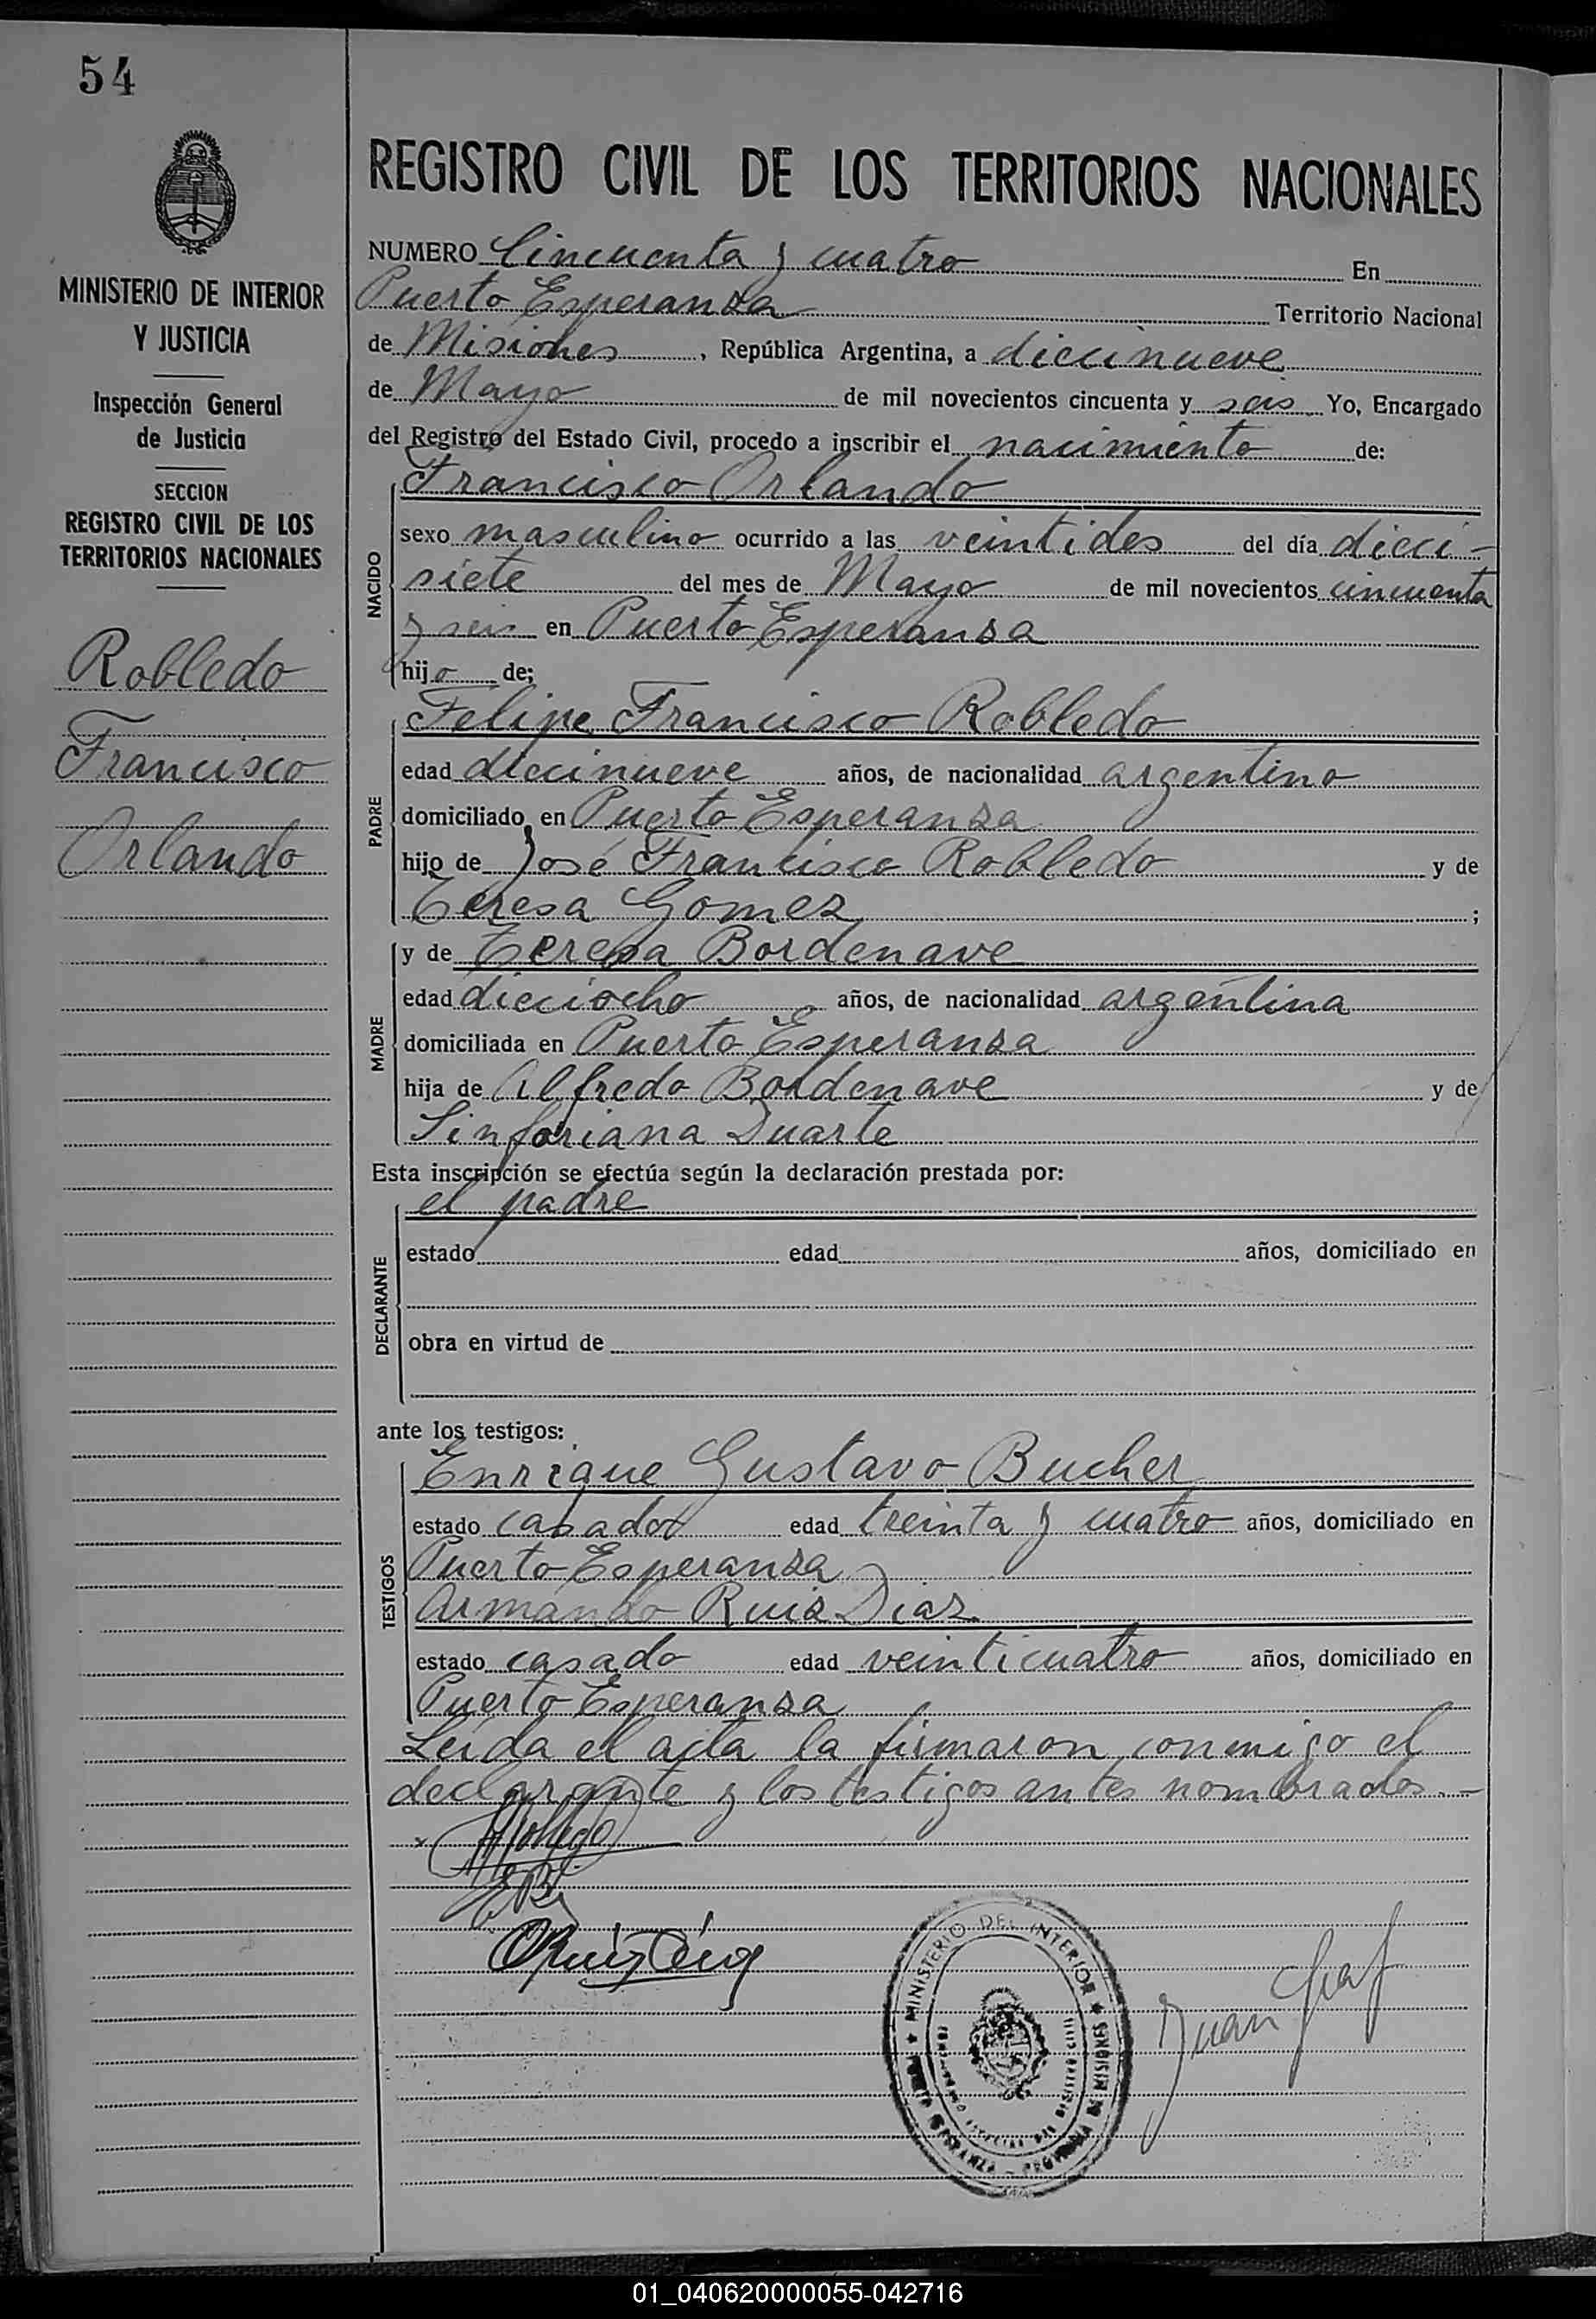 54
MINISTERIO DE INTERIOR
Y JUSTICIA
Inspección General
de Justicia
SECCION
REGISTRO CIVIL DE LOS
TERRITORIOS NACIONALES
Robledo
Francisco
Orlando
REGISTRO CIVIL DE LOS TERRITORIOS NACIONALES
NUMERO Cincuenta y cuatro En
Puerto Esperanza Territorio Nacional
de Misiones, República Argentina, a diecinueve
de Mayo de mil novecientos cincuenta y seis Yo, Encargado
del Registro del Estado Civil, procedo a inscribir el nacimiento de:
NACIDO
Francisco Orlando
sexo masculino ocurrido a las veintidos del día dieci-
siete del mes de Mayo de mil novecientos cincuenta
y seis en Puerto Esperanza
hijo de;
PADRE
Felipe Francisco Robledo
edad diecinueve años, de nacionalidad argentino
domiciliado en Puerto Esperanza
hijo de José Francisco Robledo y de
Teresa Gomez ;
MADRE
y de Teresa Bordenave
edad dieciocho años, de nacionalidad argentina
domiciliada en Puerto Esperanza
hija de Alfredo Bordenave y de
Sinforiana Duarte
Esta inscripción se efectúa según la declaración prestada por:
DECLARANTE
el padre
estado edad años, domiciliado en
obra en virtud de
ante los testigos:
TESTIGOS
Enrique Gustavo Bucher
estado casado edad treinta y cuatro años, domiciliado en
Puerto Esperanza
Armando Ruiz Diaz
estado casado edad veinticuatro años, domiciliado en
Puerto Esperanza
Leída el acta la firmaron conmigo el
declarante y los testigos antes nombrados.-
MINISTERIO DEL INTERIOR
PUERTO ESPERANZA - PROVINCIA DE MISIONES
Juan Graf
01_040620000055-042716